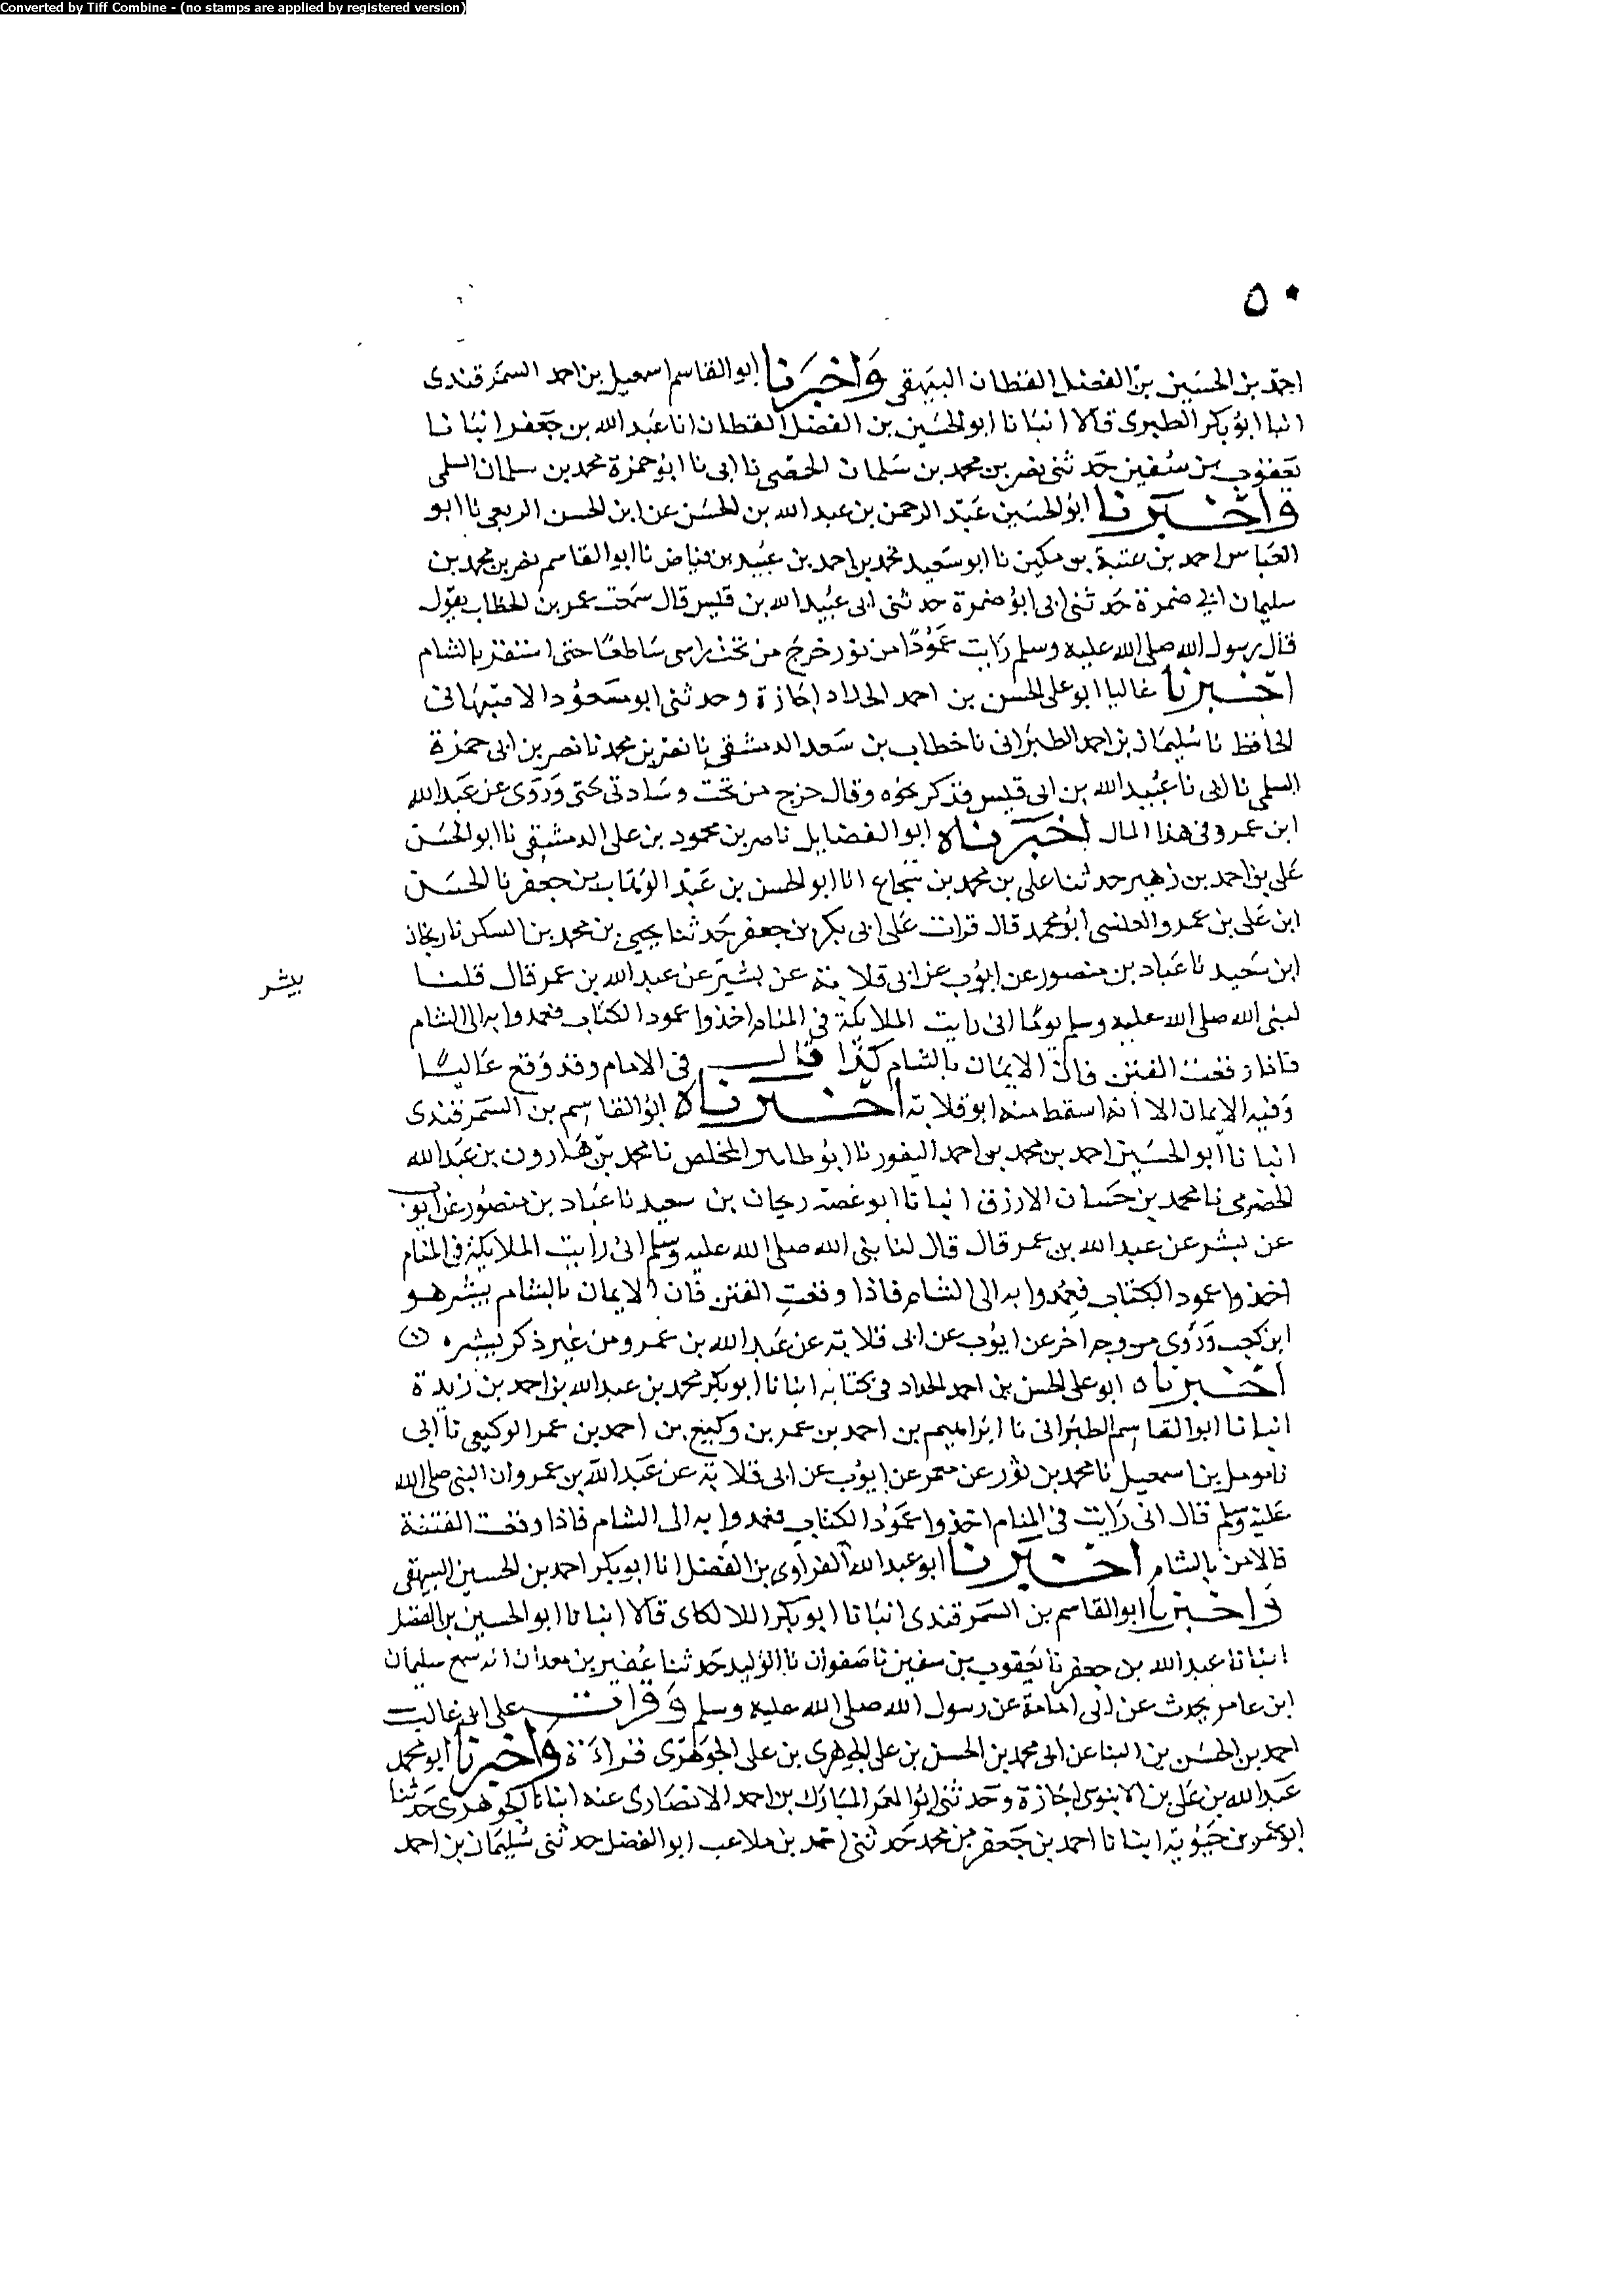 Converted by Tiff Combine - (no stamps are applied by registered version)
٥٠
احمد بن الحسين بن الفضل القطان البيهقي واخبرنا ابو القاسم اسمعيل بن احمد السمرقندي
انبا ابو بكر الطبري قالا انبانا ابو الحسين بن الفضل القطان انا عبد الله بن جعفر انبانا
يعقوب بن سفين حدثني نصر بن محمد بن سلمان الحمصي نا ابي نا ابو حمزة محمد بن سلمان السلمي
واخبرنا ابو الحسين عبد الرحمن بن عبد الله بن الحسن عن ابن الحسن الربعي نا ابو
العباس احمد بن عتبة بن مكين نا ابو سعيد محمد بن احمد بن عبيد بن فياض نا ابو القاسم نصر بن محمد بن
سليمان ابي ضمرة حدثني ابي ابو ضمرة حدثني ابي عبيد الله بن قليس قال سمعت عمر بن الخطاب يقول
قال رسول الله صلى الله عليه وسلم رايت عمودا من نور خرج من تحت راسي ساطعا حتى استقر بالشام
اخبرنا عاليا ابو علي الحسن بن احمد الحداد اجازة وحدثني ابو مسعود الاصبهاني
الحافظ نا سليمان بن احمد الطبراني نا خطاب بن سعد الدمشقي نا نصر بن محمد نا نصر بن ابي حمزة
السلمي نا ابي نا عبيد الله بن ابي قيس فذكر نحوه وقال خرج من تحت وسادتي حتى وروى عن عبد الله
ابن عمرو في هذا المال اخبرناه ابو الفضايل ناصر بن محمود بن علي الدمشقي نا ابو الحسن
علي بن احمد بن زهير حدثنا علي بن محمد بن شجاع انا ابو الحسن بن عبد الوهاب بن جعفر نا الحسن
ابن علي بن عمرو الحلبي ابو محمد قال قرات على ابي بكر بن جعفر حدثنا يحيى بن محمد بن السكن نا ريحان
ابن سعيد نا عباد بن منصور عن ايوب عن ابي قلابة عن بشير عن عبد الله بن عمر قال قلنا
بيشر
لنبي الله صلى الله عليه وسلم يوما اني رايت الملايكة في المنام اخذوا عمود الكتاب فعمدوا به الى الشام
فاذا وقعت الفتن فان الايمان بالشام كذا قال في الامام وقد وقع عاليا
وفيه الايمان الا انه اسقط منه ابو قلابة اخبرناه ابو القاسم بن السمرقندي
انبانا ابو الحسين احمد بن محمد بن احمد النقور نا ابو طاهر المخلص نا محمد بن هارون بن عبد الله
الحضرمي نا محمد بن حسان الازرق انبانا ابو عصمة ريحان بن سعيد نا عباد بن منصور عن ايوب
عن بشر عن عبد الله بن عمر قال قال لنا نبي الله صلى الله عليه وسلم اني رايت الملايكة في المنام
اخذوا عمود الكتاب فعمدوا به الى الشام فاذا وقعت الفتن فان الايمان بالشام بيشر هو
ابن كعب وروى من وجه اخر عن ايوب عن ابي قلابة عن عبد الله بن عمرو من غير ذكر بيشره
اخبرناه ابو علي الحسن بن احمد الحداد في كتابه انبانا ابو بكر محمد بن عبد الله بن احمد بن زيدة
انبانا ابو القاسم الطبراني نا ابراهيم بن احمد بن عمر بن وكيع بن احمد بن عمر الوكيعي نا ابي
نا مومل بن اسمعيل نا محمد بن ثور عن معمر عن ايوب عن ابي قلابة عن عبد الله بن عمرو ان النبي صلى الله
عليه وسلم قال اني رايت في المنام اخذوا عمود الكتاب فعمدوا به الى الشام فاذا وقعت الفتنة
فالامن بالشام اخبرنا ابو عبد الله الفراوي بن الفضل انا ابو بكر احمد بن الحسين البيهقي
واخبرنا ابو القاسم بن السمرقندي انبانا ابو بكر اللالكاى قالا انبانا ابو الحسين بن الفضل
انبانا عبد الله بن جعفر نا يعقوب بن سفين نا صفوان نا الوليد حدثنا عفير بن معدان انه سمع سليمان
ابن عامر يحدث عن ابي امامة عن رسول الله صلى الله عليه وسلم وقرات على ابي غالب
احمد بن الحسن بن البنا عن ابي محمد بن الحسن بن علي الجوهري بن علي الجوهري قراءة واخبرنا ابو محمد
عبد الله بن علي بن الابنوسي اجازة وحدثني ابو المعمر المبارك بن احمد الانصاري عنه انبانا الجوهري حدثنا
ابو عمر بن حيوية انبانا احمد بن جعفر بن محمد حدثني احمد بن ملاعب ابو الفضل حدثني سليمان بن احمد